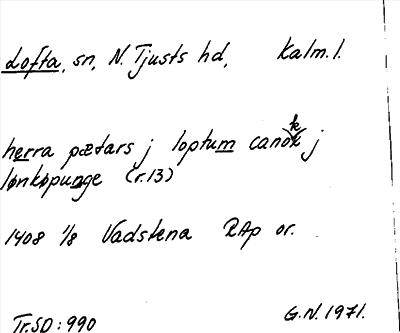 Lofta, sn, N. Tjusts hd, Kalm. l.
herra pætars j loptum canok j
lønkøpunge (r.13)
1408 1/8 Vadstena RAp or.
Tr. SD: 990 G.N. 1971.